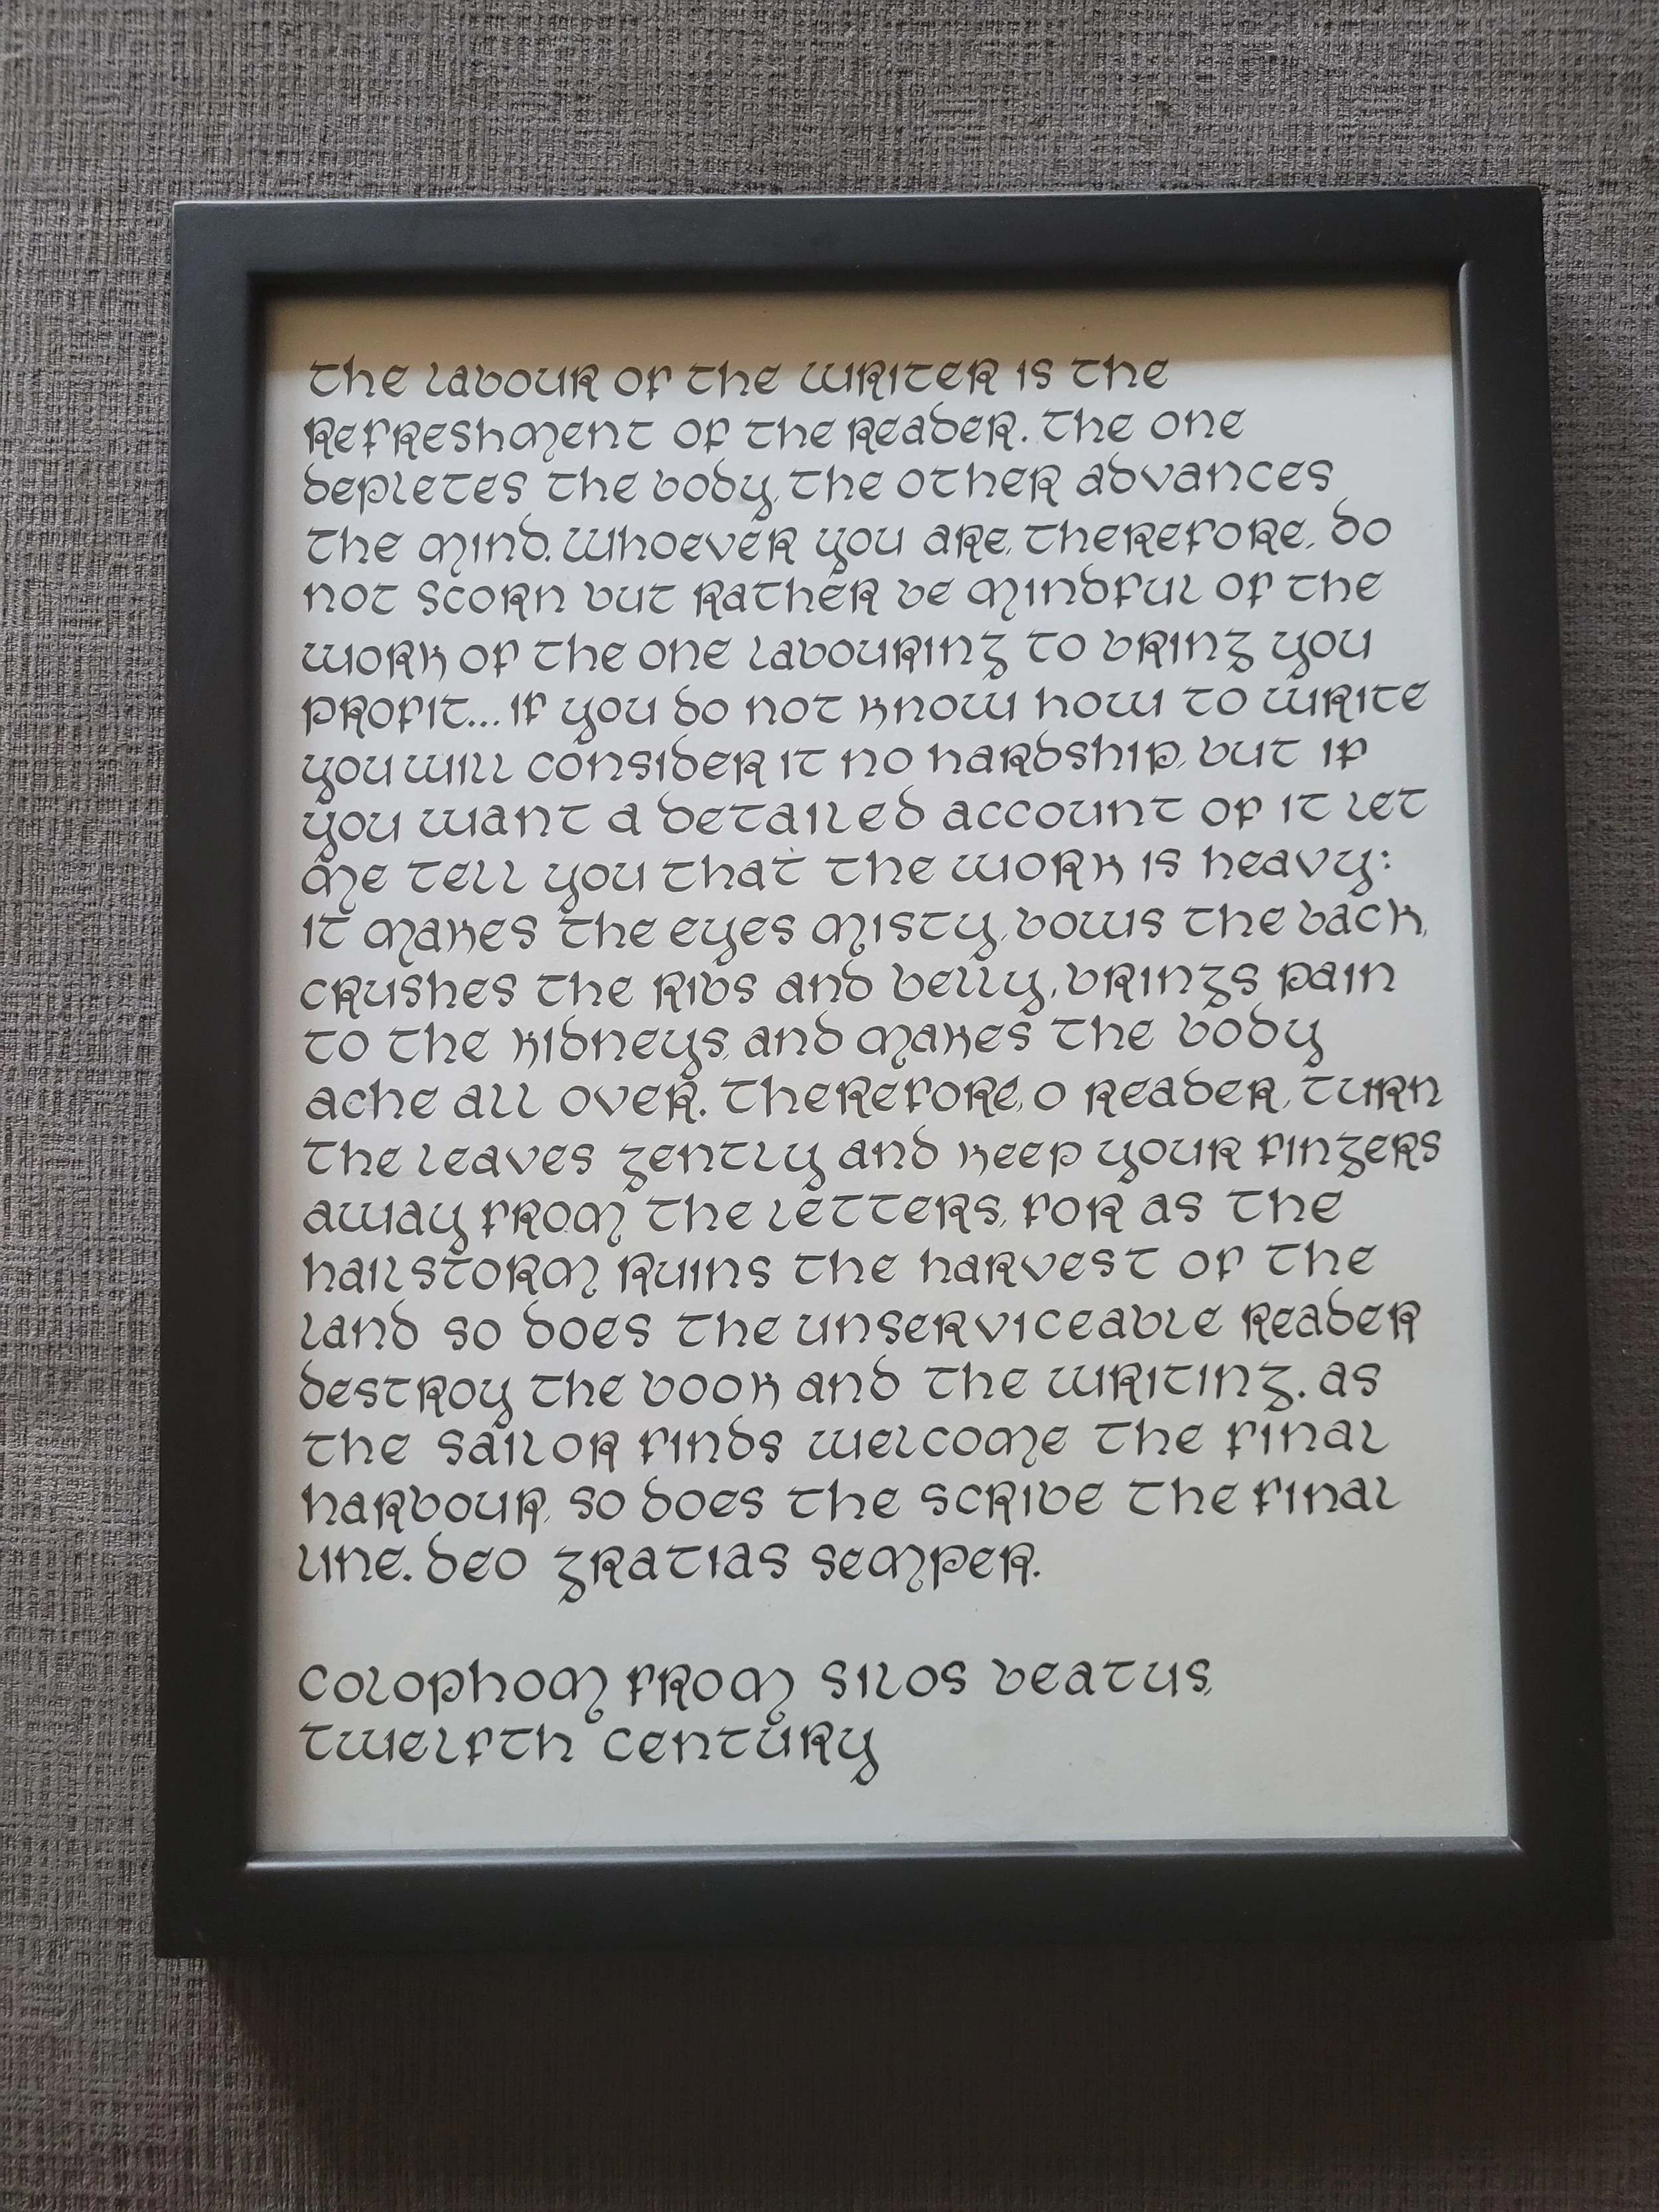 the labour of the writer is the
refreshment of the reader. the one
depletes the body, the other advances
the mind. whoever you are, therefore, do
not scorn but rather be mindful of the
work of the one labouring to bring you
profit... if you do not know how to write
you will consider it no hardship, but if
you want a detailed account of it let
me tell you that the work is heavy:
it makes the eyes misty, bows the back,
crushes the ribs and belly, brings pain
to the kidneys, and makes the body
ache all over. therefore, o reader, turn
the leaves gently and keep your fingers
away from the letters, for as the
hailstorm ruins the harvest of the
land so does the unserviceable reader
destroy the book and the writing. as
the sailor finds welcome the final
harbour, so does the scribe the final
line. deo gratias semper.
colophom from silos beatus,
twelfth century